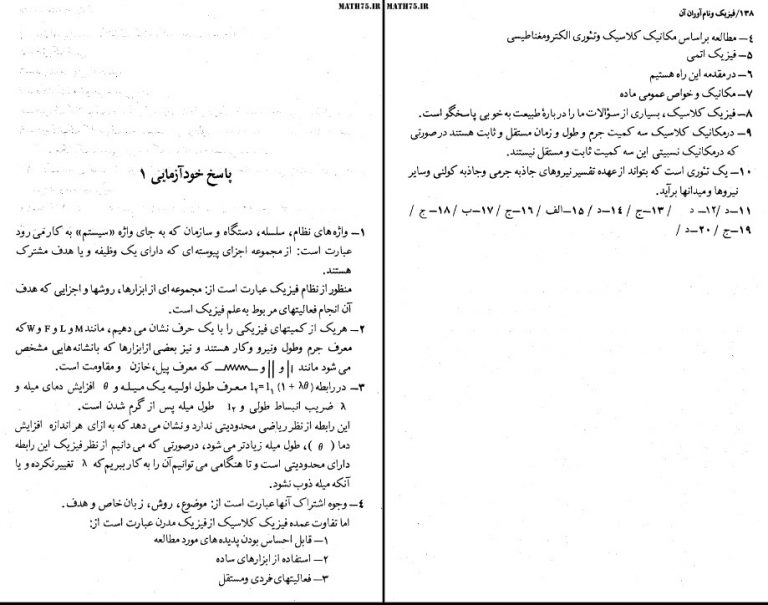 MATH75.IR
پاسخ خودآزمایی ۱
۱– واژه‌های نظام، سلسله، دستگاه و سازمان که به جای واژه «سیستم» به کار می رود
عبارت است: از مجموعه اجزای پیوسته‌ای که دارای یک وظیفه و یا هدف مشترک
هستند.
منظور از نظام فیزیک عبارت است از: مجموعه‌ای از ابزارها، روشها و اجزایی که هدف
آن انجام فعالیتهای مربوط به علم فیزیک است.
۲– هر یک از کمیتهای فیزیکی را با یک حرف نشان می دهیم، مانند M و L و F و W که
معرف جرم وطول ونیرو وکار هستند و نیز بعضی ازابزارها که بانشانه‌هایی مشخص
می شود مانند و و که معرف پیل، خازن و مقاومت است.
۳– در رابطه l₂=l₁ (۱ + λθ) معرف طول اولیه یک میله و θ افزایش دمای میله و
λ ضریب انبساط طولی و l₂ طول میله پس از گرم شدن است.
این رابطه از نظر ریاضی محدودیتی ندارد و نشان می دهد که به ازای هر اندازه افزایش
دما ( θ )، طول میله زیادتر می شود، درصورتی که می دانیم از نظر فیزیک این رابطه
دارای محدودیتی است و تا هنگامی می توانیم آن را به کار ببریم که λ تغییر نکرده و یا
آنکه میله ذوب نشود.
۴– وجوه اشتراک آنها عبارت است از: موضوع، روش، زبان خاص و هدف.
اما تفاوت عمده فیزیک کلاسیک از فیزیک مدرن عبارت است از:
۱– قابل احساس بودن پدیده‌های مورد مطالعه
۲– استفاده از ابزارهای ساده
۳– فعالیتهای فردی ومستقل
MATH75.IR
۱۳۸/فیزیک ونام آوران آن
۴– مطالعه براساس مکانیک کلاسیک وتئوری الکترومغناطیسی
۵– فیزیک اتمی
۶– در مقدمه این راه هستیم
۷– مکانیک و خواص عمومی ماده
۸– فیزیک کلاسیک، بسیاری از سؤالات ما را دربارهٔ طبیعت به خوبی پاسخگو است.
۹– درمکانیک کلاسیک سه کمیت جرم و طول و زمان مستقل و ثابت هستند درصورتی
که درمکانیک نسبیتی این سه کمیت ثابت و مستقل نیستند.
۱۰– یک تئوری است که بتواند از عهده تفسیر نیروهای جاذبه جرمی وجاذبه کولنی وسایر
نیروها و میدانها برآید.
۱۱–د /۱۲– د / ۱۳–ج / ۱۴–د / ۱۵–الف / ۱۶–ج / ۱۷–ب / ۱۸– ج /
۱۹–ج / ۲۰–د /